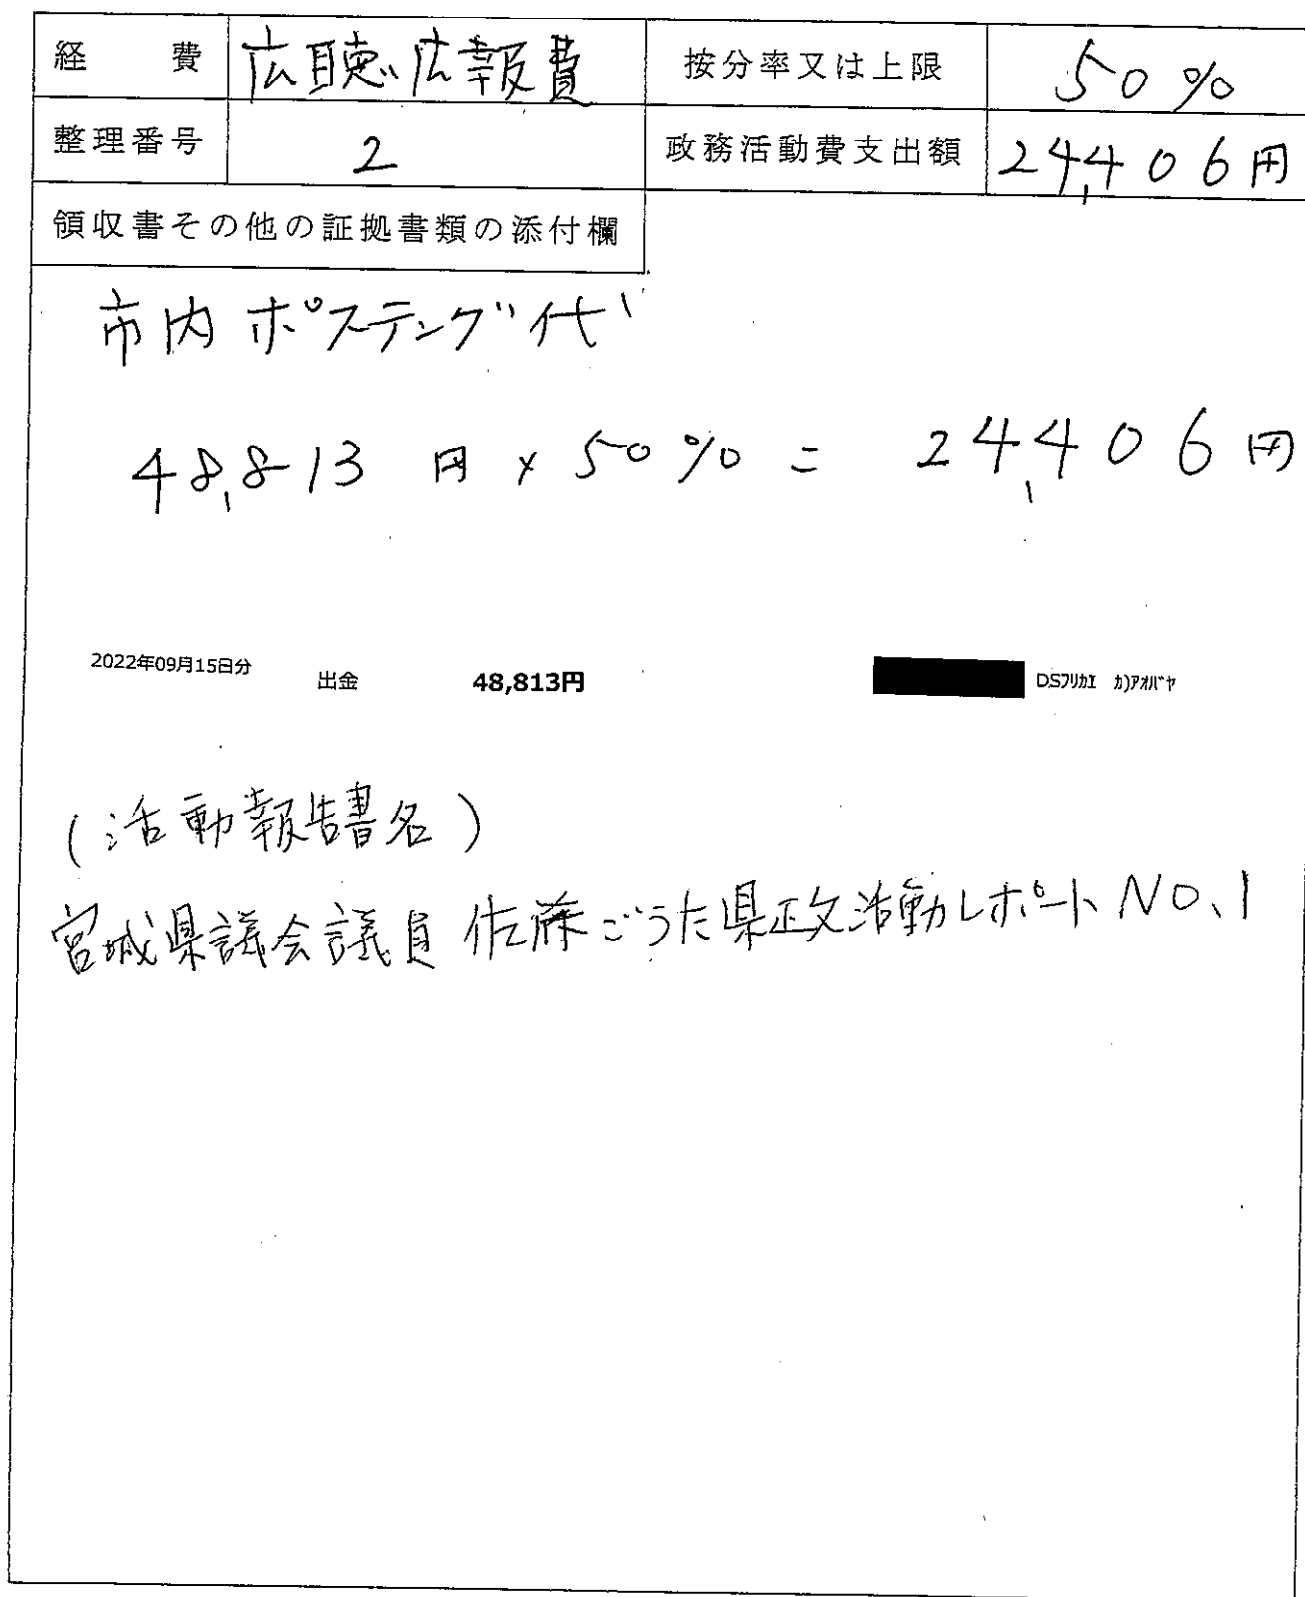 経費 広聴広報費 按分率又は上限 50%
整理番号 2 政務活動費支出額 24,406円
領収書その他の証拠書類の添付欄
市内ポスティング代
48,813円×50%= 24,406円
2022年09月15日分 出金 48,813円 DSフリカエ カ)アオバヤ
(活動報告書名)
宮城県議会議員 佐藤ごうた県政活動レポートNO、1